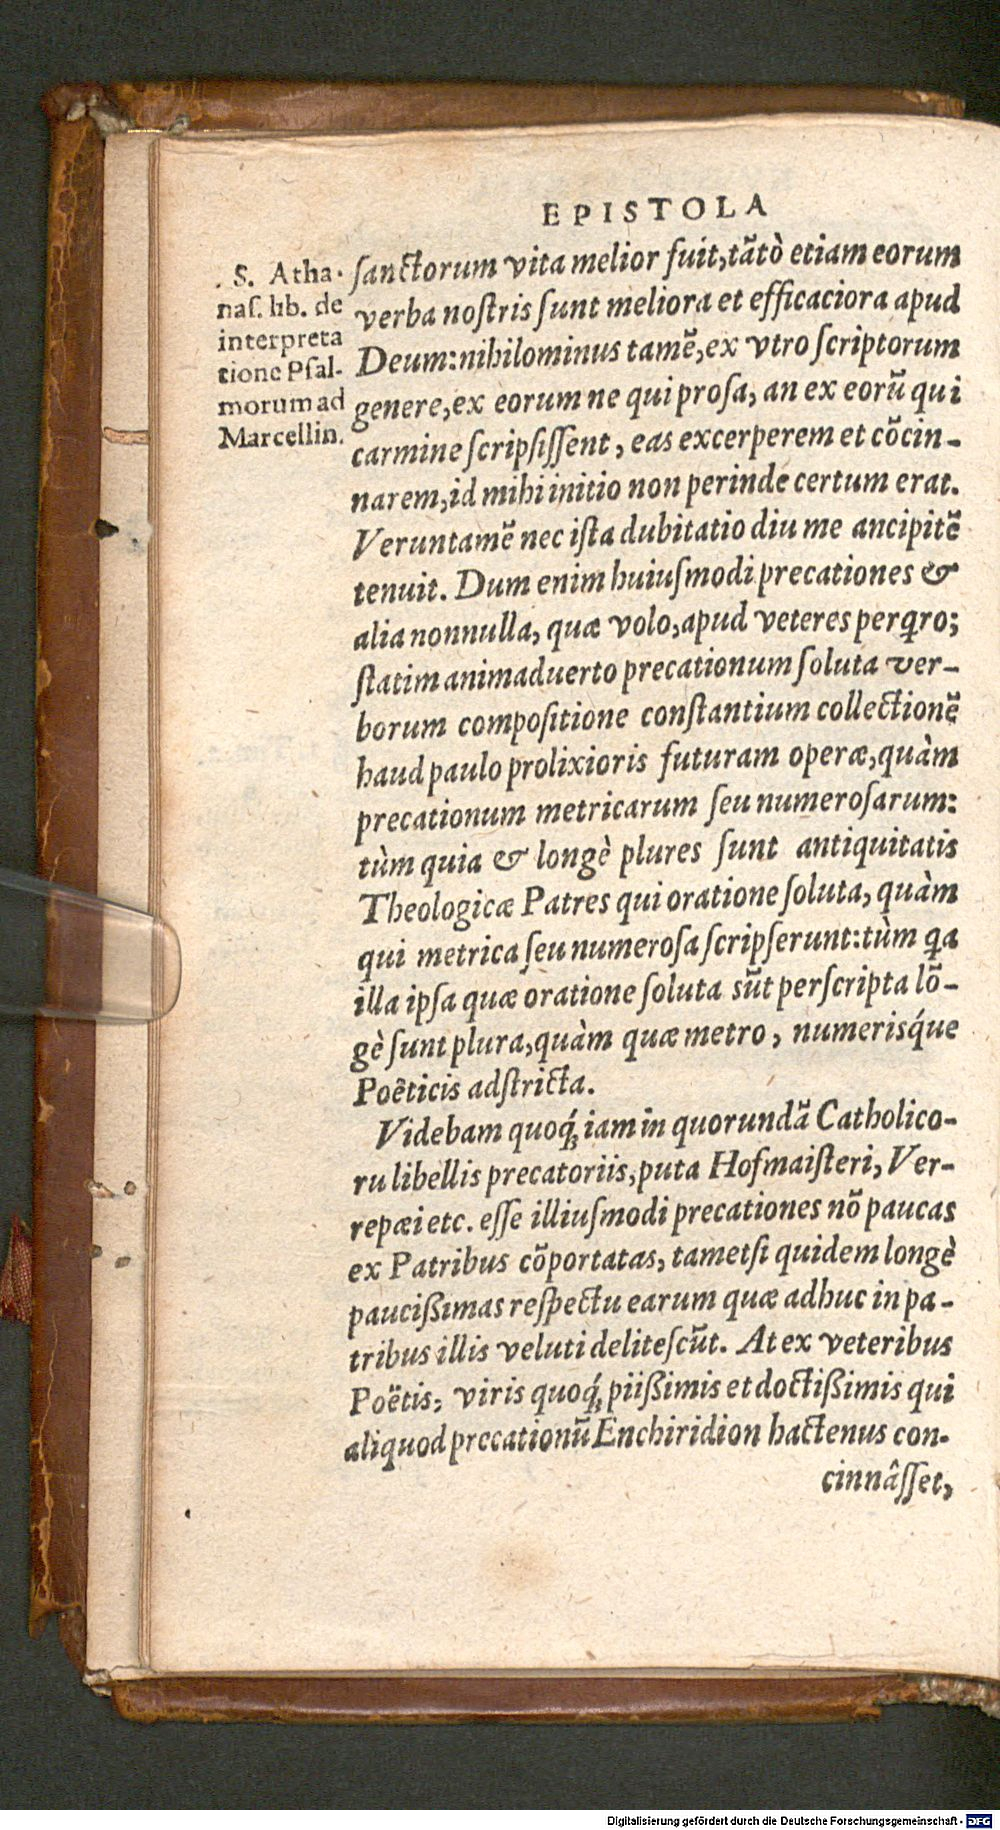 EPISTOLA
. S. Atha-
nas. lib. de
interpreta
tione Psal-
morum ad
Marcellin.
ſanctorum vita melior fuit, tãtò etiam eorum
verba noſtris ſunt meliora et efficaciora apud
Deum: nihilominus tamẽ, ex vtro ſcriptorum
genere, ex eorum ne qui proſa, an ex eorũ qui
carmine ſcripſiſſent, eas excerperem et cõcin-
narem, id mihi initio non perinde certum erat.
Veruntamẽ nec iſta dubitatio diu me ancipitẽ
tenuit. Dum enim huiuſmodi precationes &
alia nonnulla, quæ volo, apud veteres perꝗro;
ſtatim animaduerto precationum ſoluta ver-
borum compoſitione conſtantium collectionẽ
haud paulo prolixioris futuram operæ, quàm
precationum metricarum ſeu numeroſarum:
tùm quia & longè plures ſunt antiquitatis
Theologicæ Patres qui oratione ſoluta, quàm
qui metrica ſeu numeroſa ſcripſerunt: tùm ꝗa
illa ipſa quæ oratione ſoluta sũt perſcripta lõ-
gè ſunt plura, quàm quæ metro, numerisq́ue
Poêticis adſtricta.
Videbam quoq́ꝫ iam in quorundã Catholico-
ru libellis precatoriis, puta Hofmaiſteri, Ver-
repæi etc. eſſe illiuſmodi precationes nõ paucas
ex Patribus cõportatas, tametſi quidem longè
pauciſſimas reſpectu earum quæ adhuc in pa-
tribus illis veluti deliteſcũt. At ex veteribus
Poëtis, viris quoq́ꝫ piißimis et doctißimis qui
aliquod precationũ Enchiridion hactenus con-
cinnâſſet,
Digitalisierung gefördert durch die Deutsche Forschungsgemeinschaft - DFG